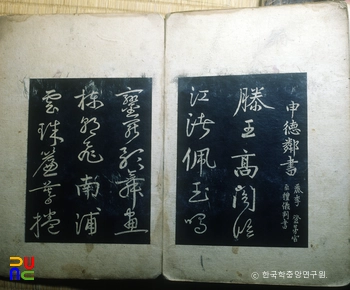 申德鄰書
登第官
至禮儀判書
滕王高閣臨
江渚佩玉鳴
鸞罷歌舞畫
棟朝飛南浦
雲珠簾暮捲
ⓒ 한국학중앙연구원